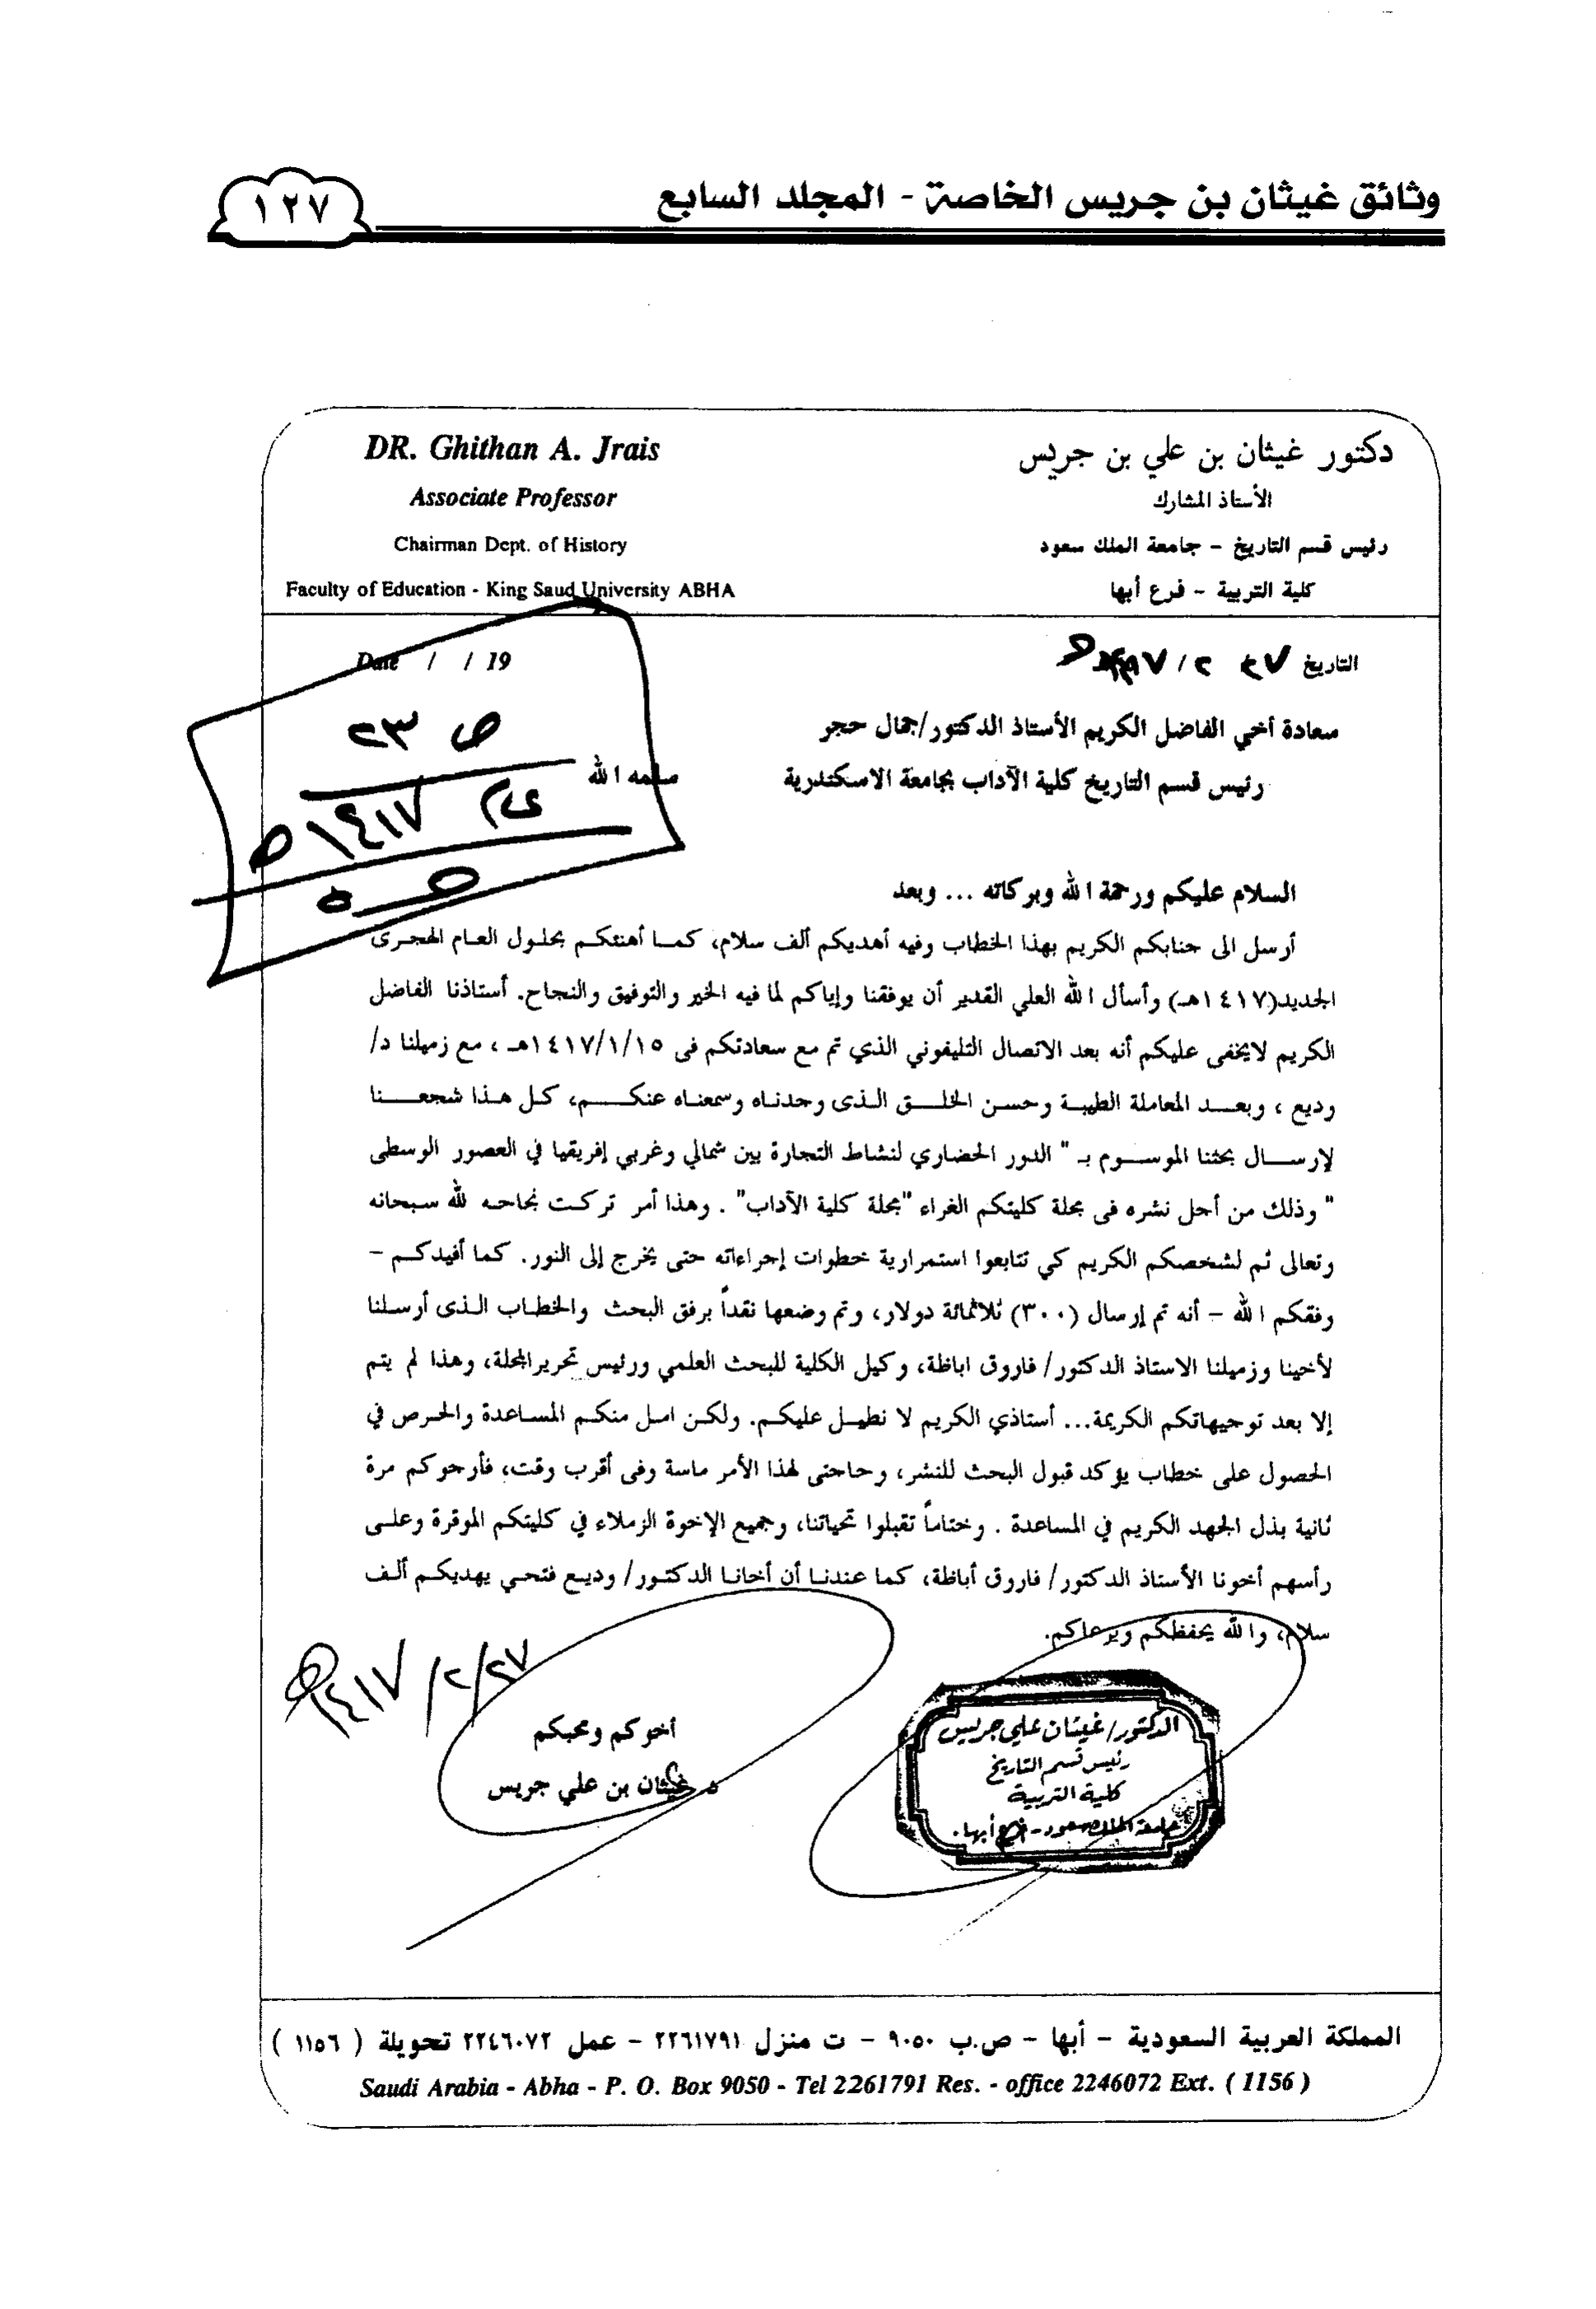 وثائق غيثان بن جريس الخاصة - المجلد السابع
١٢٧
دكتور غيثان بن علي بن جريس
الأستاذ المشارك
رئيس قسم التاريخ - جامعة الملك سعود
كلية التربية - فرع أبها
DR. Ghithan A. Jrais
Associate Professor
Chairman Dept. of History
Faculty of Education - King Saud University ABHA
التاريخ ٢٧ / ٢
Date / / 19
ص ٢٣
١٤١٧هـ
سعادة أخي الفاضل الكريم الأستاذ الدكتور/جمال حجر
رئيس قسم التاريخ كلية الآداب بجامعة الاسكندرية سلمه الله
السلام عليكم ورحمة الله وبركاته ... وبعد
أرسل الى جنابكم الكريم بهذا الخطاب وفيه أهديكم ألف سلام، كما أهنئكم بحلول العام الهجرى
الجديد(١٤١٧هـ) وأسأل الله العلي القدير أن يوفقنا وإياكم لما فيه الخير والتوفيق والنجاح. أستاذنا الفاضل
الكريم لايخفى عليكم أنه بعد الاتصال التليفوني الذي تم مع سعادتكم فى ١٤١٧/١/١٥هـ ، مع زميلنا د/
وديع ، وبعد المعاملة الطيبة وحسن الخلق الذى وجدناه وسمعناه عنكم، كل هذا شجعنا
لإرسال بحثنا الموسوم بـ " الدور الحضاري لنشاط التجارة بين شمالي وغربي إفريقيا في العصور الوسطى
" وذلك من أجل نشره فى مجلة كليتكم الغراء "مجلة كلية الآداب" . وهذا أمر تركت نجاحه لله سبحانه
وتعالى ثم لشخصكم الكريم كي تتابعوا استمرارية خطوات إجراءاته حتى يخرج إلى النور. كما أفيدكم -
وفقكم الله - أنه تم إرسال (٣٠٠) ثلاثمائة دولار، وتم وضعها نقداً برفق البحث والخطاب الذى أرسلنا
لأخينا وزميلنا الاستاذ الدكتور/ فاروق اباظة، وكيل الكلية للبحث العلمي ورئيس تحريرالمجلة، وهذا لم يتم
إلا بعد توجيهاتكم الكريمة... أستاذي الكريم لا نطيل عليكم. ولكن امل منكم المساعدة والحرص في
الحصول على خطاب يؤكد قبول البحث للنشر، وحاجتى لهذا الأمر ماسة وفى أقرب وقت، فأرجوكم مرة
ثانية بذل الجهد الكريم في المساعدة . وختاماً تقبلوا تحياتنا، وجميع الإخوة الزملاء في كليتكم الموقرة وعلى
رأسهم أخونا الأستاذ الدكتور/ فاروق أباظة، كما عندنا أن أخانا الدكتور/ وديع فتحي يهديكم ألف
سلام، والله يحفظكم ويرعاكم.
٢٧/٢/١٤١٧هـ
أخوكم ومحبكم
د. غيثان بن علي جريس
الدكتور/ غيثان علي جريس
رئيس قسم التاريخ
كلية التربية
جامعة الملك سعود - فرع أبها.
المملكة العربية السعودية - أبها - ص.ب ٩٠٥٠ - ت منزل ٢٢٦١٧٩١ - عمل ٢٢٤٦٠٧٢ تحويلة ( ١١٥٦ )
Saudi Arabia - Abha - P. O. Box 9050 - Tel 2261791 Res. - office 2246072 Ext. ( 1156 )